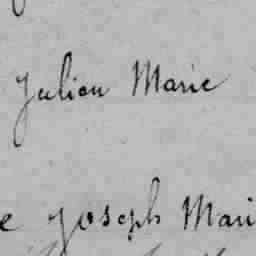 Julien Marie
e Joseph Mari